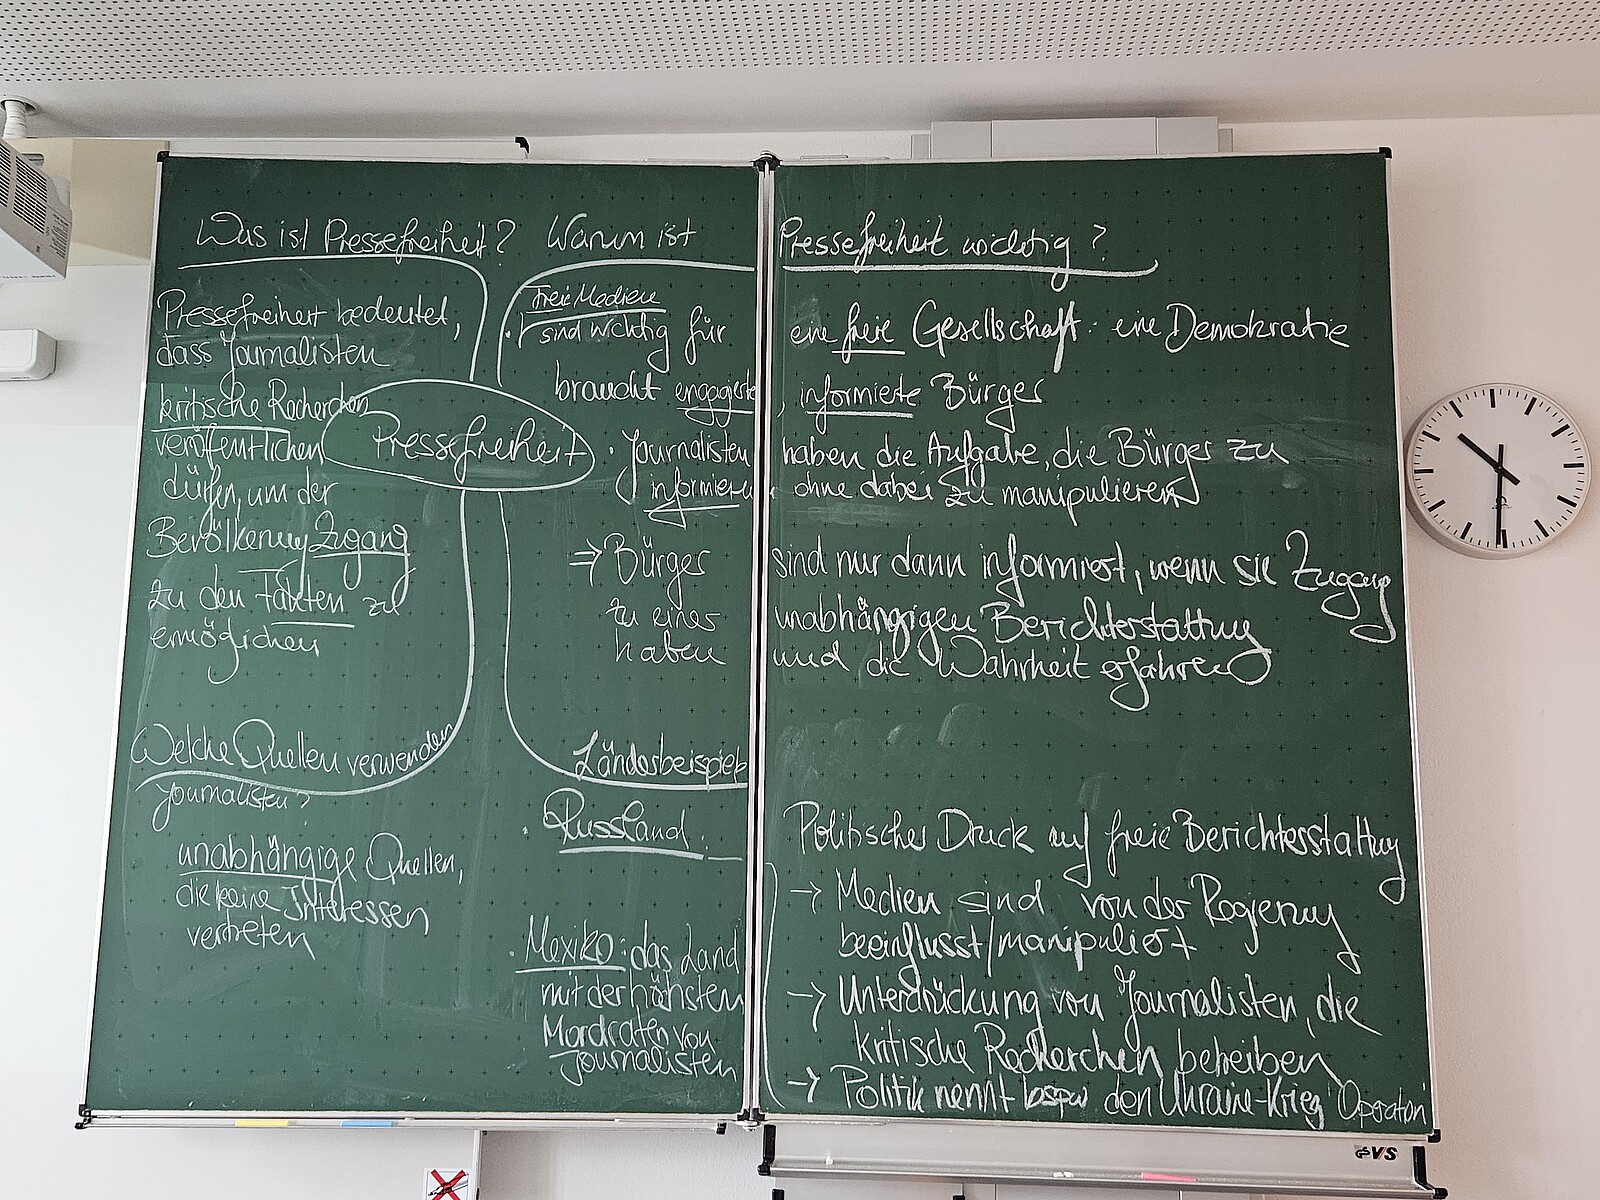 Was ist Pressefreiheit?
Pressefreiheit bedeutet,
dass Journalisten
kritische Recherchen
veröffentlichen
dürfen, um der
Bevölkerung Zugang
zu den Fakten zu
ermöglichen
Pressefreiheit
Warum ist Pressefreiheit wichtig?
Freie Medien
· sind wichtig für eine freie Gesellschaft eine Demokratie
braucht engagierte, informierte Bürger
· Journalisten haben die Aufgabe, die Bürger zu
informieren ohne dabei zu manipulieren
⇒ Bürger sind nur dann informiert, wenn sie Zugang
zu einer unabhängigen Berichterstattung
haben und die Wahrheit erfahren
Welche Quellen verwenden
Journalisten?
unabhängige Quellen,
die keine Interessen
vertreten
Länderbeispiele
· Russland:
Politischer Druck auf freie Berichtersstattung
→ Medien sind von der Regierung
beeinflusst/manipuliert
→ Unterdrückung von Journalisten, die
kritische Recherchen betreiben
→ Politik nennt bspw den Ukraine-Krieg Operation
· Mexiko: das Land
mit der höchsten
Mordraten von
Journalisten
VS